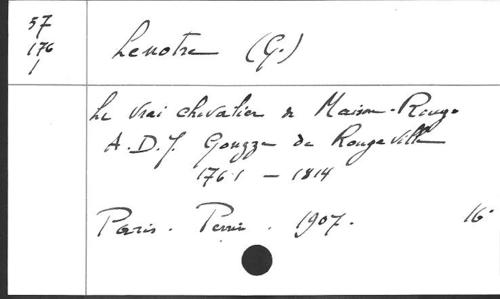 57
176
1
Lenotre (G.)
Le vrai chevalier de Maison-Rouge
A.D.J. Gonzze de Rougeville
1761 - 1814
Paris. Perrin. 1907. 16°